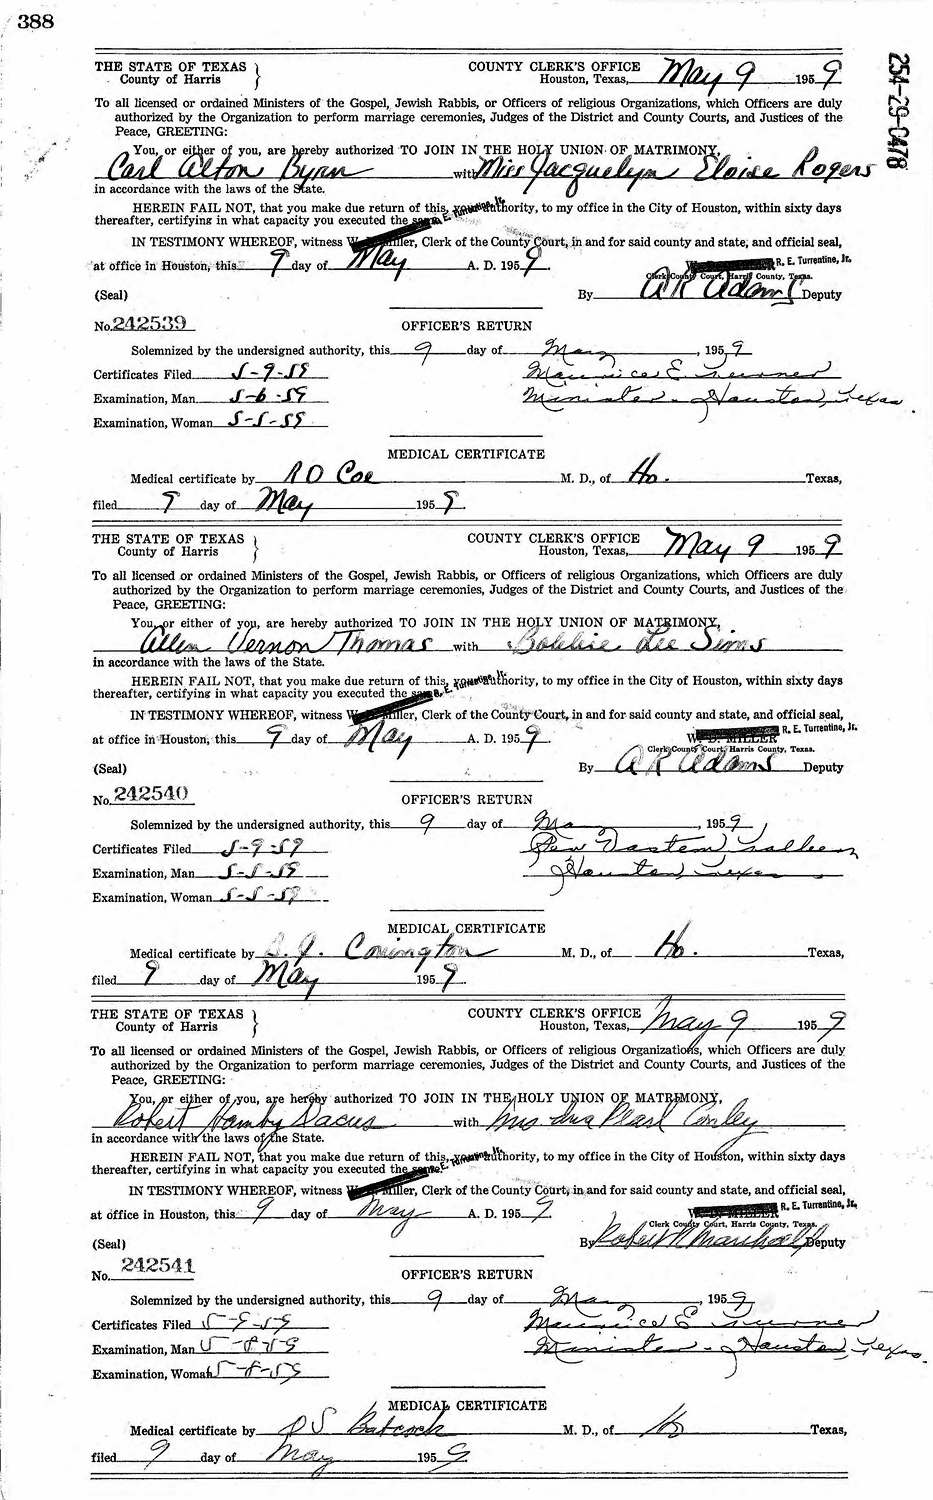 388
254-29-0478
THE STATE OF TEXAS } COUNTY CLERK'S OFFICE
County of Harris Houston, Texas, May 9 1959
To all licensed or ordained Ministers of the Gospel, Jewish Rabbis, or Officers of religious Organizations, which Officers are duly
authorized by the Organization to perform marriage ceremonies, Judges of the District and County Courts, and Justices of the
Peace, GREETING:
You, or either of you, are hereby authorized TO JOIN IN THE HOLY UNION OF MATRIMONY,
Carl Alton Byrn with Miss Jacquelyn Eloise Rogers
in accordance with the laws of the State.
HEREIN FAIL NOT, that you make due return of this, your authority, to my office in the City of Houston, within sixty days
thereafter, certifying in what capacity you executed the same. R. E. Turrentine, Jr.
IN TESTIMONY WHEREOF, witness W. Miller, Clerk of the County Court, in and for said county and state, and official seal,
at office in Houston, this 9 day of May A. D. 1959
R. E. Turrentine, Jr.
Clerk County Court, Harris County, Texas.
(Seal) By A R Adams Deputy
No. 242539 OFFICER'S RETURN
Solemnized by the undersigned authority, this 9 day of May, 1959
Certificates Filed 5-9-59 Maurice E. Turner
Examination, Man 5-6-59 Minister - Houston, Texas.
Examination, Woman 5-5-59
MEDICAL CERTIFICATE
Medical certificate by R D Coe M. D., of Ho. Texas,
filed 9 day of May 1959.
THE STATE OF TEXAS } COUNTY CLERK'S OFFICE
County of Harris Houston, Texas, May 9 1959
To all licensed or ordained Ministers of the Gospel, Jewish Rabbis, or Officers of religious Organizations, which Officers are duly
authorized by the Organization to perform marriage ceremonies, Judges of the District and County Courts, and Justices of the
Peace, GREETING:
You, or either of you, are hereby authorized TO JOIN IN THE HOLY UNION OF MATRIMONY,
Allen Vernon Thomas with Bobbie Lee Sims
in accordance with the laws of the State.
HEREIN FAIL NOT, that you make due return of this, your authority, to my office in the City of Houston, within sixty days
thereafter, certifying in what capacity you executed the same. R. E. Turrentine, Jr.
IN TESTIMONY WHEREOF, witness W. Miller, Clerk of the County Court, in and for said county and state, and official seal,
at office in Houston, this 9 day of May A. D. 1959
W. D. MILLER R. E. Turrentine, Jr.
Clerk County Court, Harris County, Texas.
(Seal) By A R Adams Deputy
No. 242540 OFFICER'S RETURN
Solemnized by the undersigned authority, this 9 day of May, 1959
Certificates Filed 5-9-59
Examination, Man 5-5-59 Houston, Texas
Examination, Woman 5-5-59
MEDICAL CERTIFICATE
Medical certificate by Covington M. D., of Ho. Texas,
filed 9 day of May 1959.
THE STATE OF TEXAS } COUNTY CLERK'S OFFICE
County of Harris Houston, Texas, May 9 1959
To all licensed or ordained Ministers of the Gospel, Jewish Rabbis, or Officers of religious Organizations, which Officers are duly
authorized by the Organization to perform marriage ceremonies, Judges of the District and County Courts, and Justices of the
Peace, GREETING:
You, or either of you, are hereby authorized TO JOIN IN THE HOLY UNION OF MATRIMONY,
Robert Hamby Dacus with Mrs Ina Pearl Conley
in accordance with the laws of the State.
HEREIN FAIL NOT, that you make due return of this, your authority, to my office in the City of Houston, within sixty days
thereafter, certifying in what capacity you executed the same. R. E. Turrentine, Jr.
IN TESTIMONY WHEREOF, witness W. Miller, Clerk of the County Court, in and for said county and state, and official seal,
at office in Houston, this 9 day of May A. D. 1959
W. D. MILLER R. E. Turrentine, Jr.
Clerk County Court, Harris County, Texas.
(Seal) By Robert N Marshall Deputy
No. 242541 OFFICER'S RETURN
Solemnized by the undersigned authority, this 9 day of May, 1959
Certificates Filed 5-9-59 Maurice E Turner
Examination, Man 5-8-59 Minister - Houston, Texas.
Examination, Woman 5-8-59
MEDICAL CERTIFICATE
Medical certificate by P S Babcock M. D., of Ho Texas,
filed 9 day of May 1959.